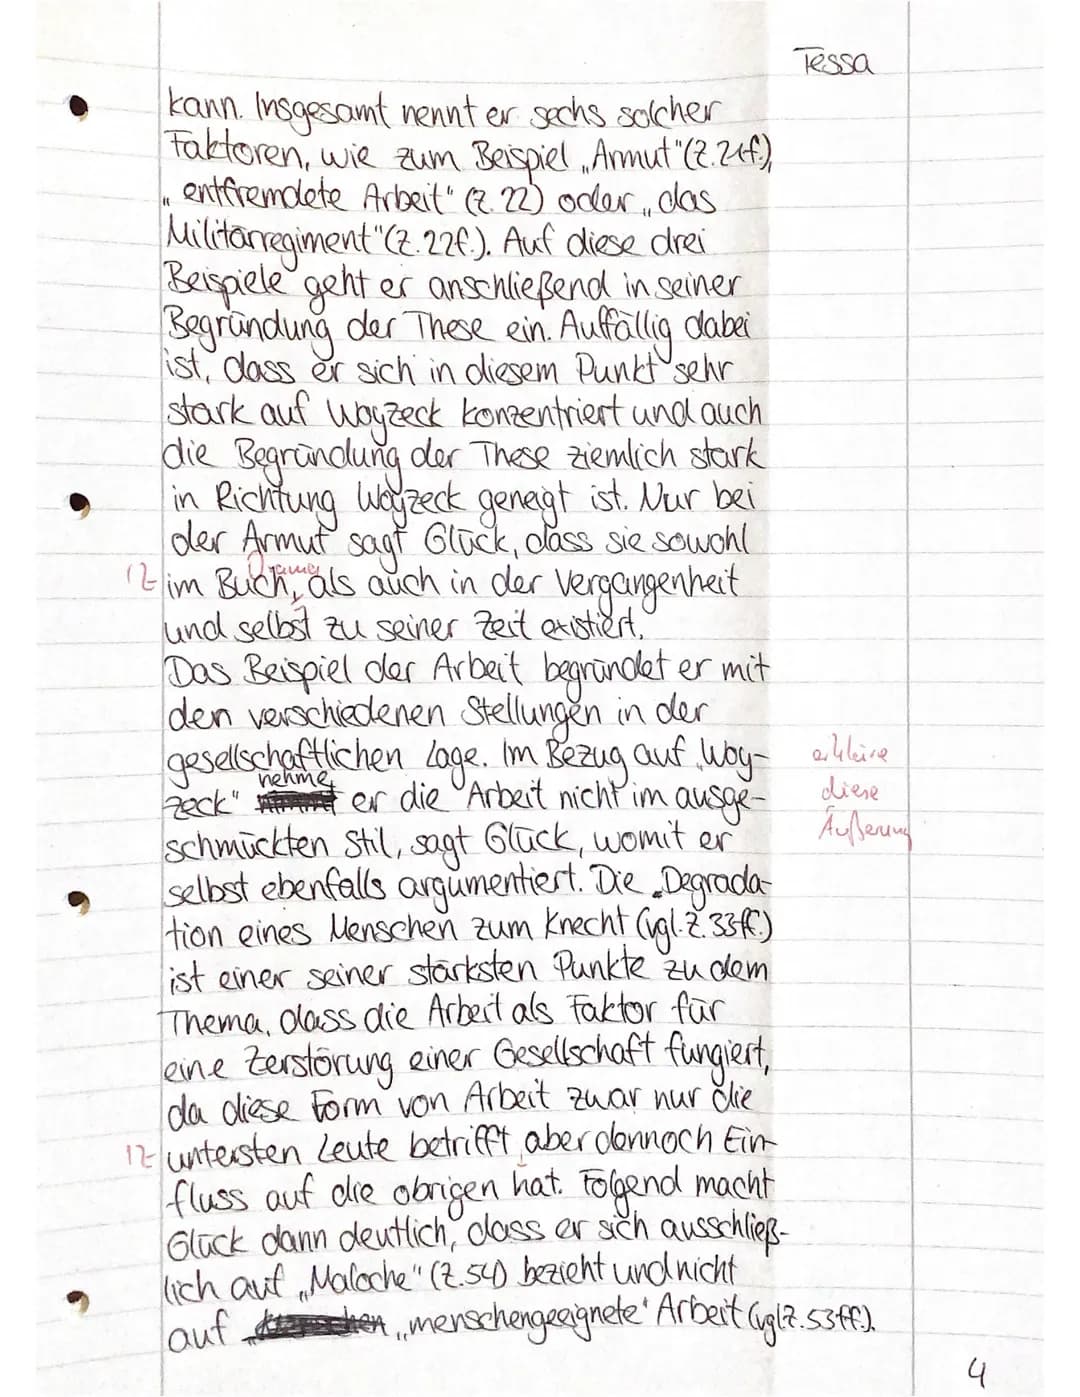 Tessa
kann. Insgesamt nennt er sechs solcher
Faktoren, wie zum Beispiel „Armut" (Z.21f.),
„entfremdete Arbeit" (Z.22) oder „das
Militärregiment" (Z.22f.). Auf diese drei
Beispiele geht er anschließend in seiner
Begründung der These ein. Auffällig dabei
ist, dass er sich in diesem Punkt sehr
stark auf Woyzeck konzentriert und auch
die Begründung der These ziemlich stark
in Richtung Woyzeck geneigt ist. Nur bei
der Armut sagt Glück, dass sie sowohl
Drama
1Z im Buch, als auch in der Vergangenheit
und selbst zu seiner Zeit existiert.
Das Beispiel der Arbeit begründet er mit
den verschiedenen Stellungen in der
gesellschaftlichen Lage. Im Bezug auf „Woy- erkläre
nehme
zeck" er die Arbeit nicht im ausge- diese
schmückten Stil, sagt Glück, womit er Äußerung
selbst ebenfalls argumentiert. Die „Degrada-
tion eines Menschen zum Knecht (vgl. Z. 33ff.)
ist einer seiner stärksten Punkte zu dem
Thema, dass die Arbeit als Faktor für
eine Zerstörung einer Gesellschaft fungiert,
da diese Form von Arbeit zwar nur die
1Z untersten Leute betrifft, aber dennoch Ein-
fluss auf die obrigen hat. Folgend macht
Glück dann deutlich, dass er sich ausschließ-
lich auf „Maloche" (Z.54) bezieht und nicht
auf „menschengeeignete" Arbeit (vgl Z.53ff).
4